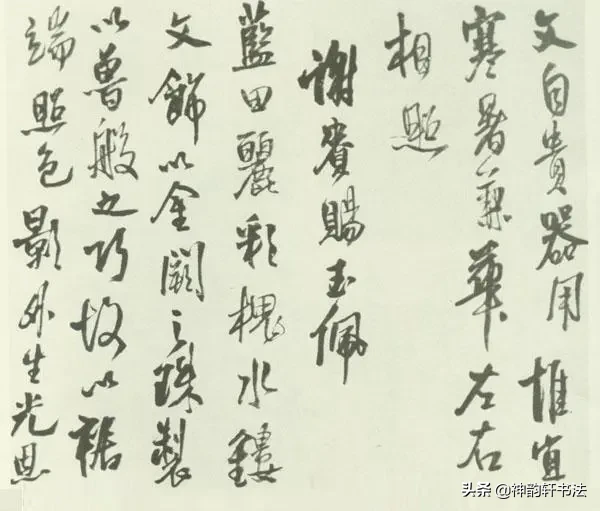 文自貴器用惟宜
寒暑兼華左右
相照
謝賚賜玉佩
藍田麗彩槐水鏤
文飾以金闕之珠製
以魯般之巧故以裾
端照色影外生光恩
头条 @神韵轩书法